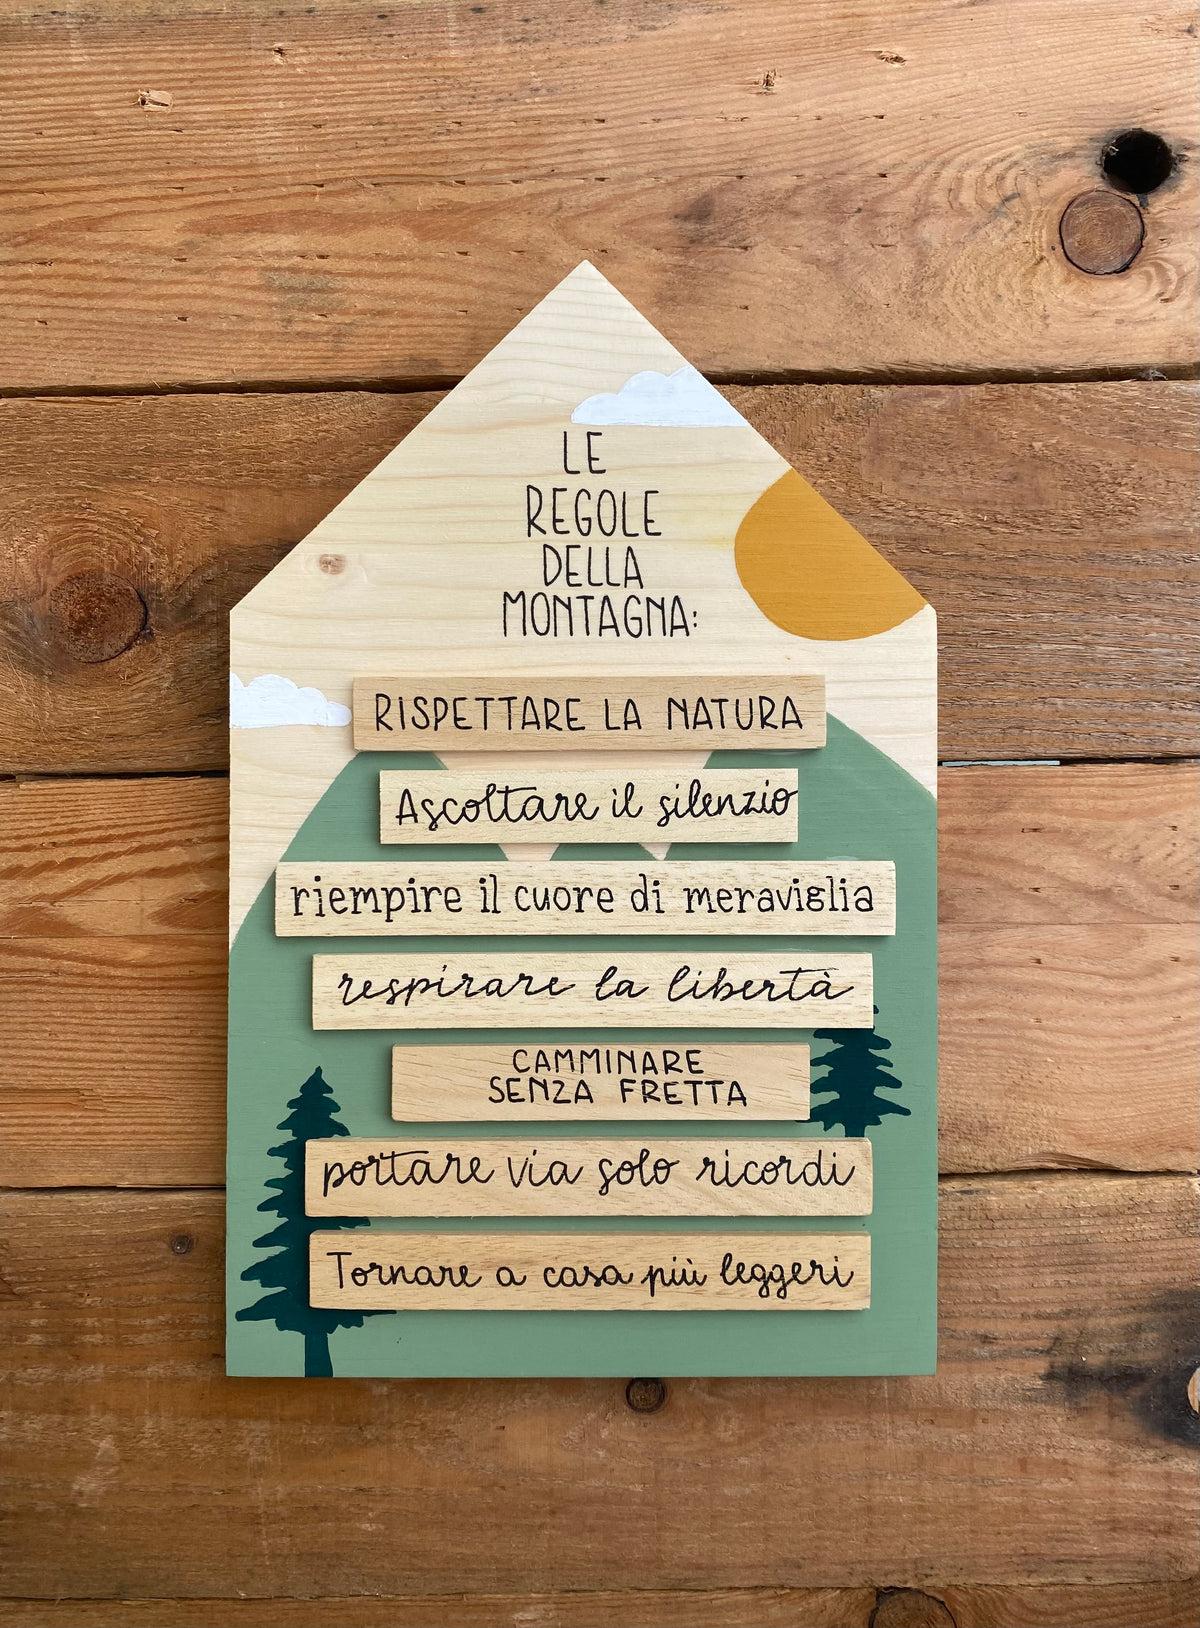 LE
REGOLE
DELLA
MONTAGNA:
RISPETTARE LA NATURA
Ascoltare il silenzio
riempire il cuore di meraviglia
respirare la libertà
CAMMINARE
SENZA FRETTA
portare via solo ricordi
Tornare a casa più leggeri